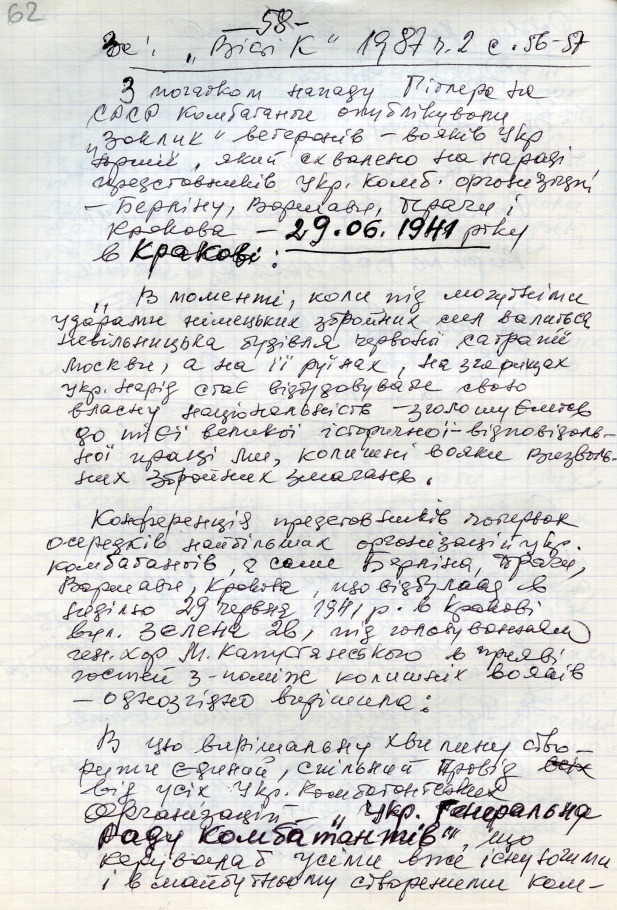 62
-58-
За: „Вісті К" 1987 ч.2 с.56-57
З початком нападу Гітлера на
СРСР комбатанти опублікували
„Заклик" ветеранів – вояків Укр
армії, який схвалено на нараді
представників Укр. комб. організацій
– Берліну, Варшави, Праги і
Кракова – 29.06.1941 року
в Кракові:
„В моменті, коли під могутніми
ударами німецьких збройних сил валиться
невільницька будівля червоної сатрапії
Москви, а на її руїнах, на згарищах
укр. нарід стає відбудовувати свою
власну національність – зголошуємось
до тієї великої історичної – відповідаль-
ної праці ми, колишні вояки визволь-
них збройних змагань.
Конференція представників
осередків найбільших організацій укр.
комбатантів, а саме Берліна, Праги,
Варшави, Кракова, що відбулась в
неділю 29 червня 1941 р. в Кракові
вул. Зелена 26, під головуванням
ген. хор М. Капустянського в прияві
гостей з-поміж колишніх вояків
– однозгідно вирішила:
В цю вирішальну хвилину ство-
рити єдиний, спільний провід всіх
від усіх Укр. комбатантських
Організацій – „Укр. Генеральна
Раду комбатантів", що
керувала б усіми вже існуючими
і в майбутньому створеними ком-